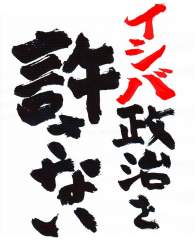 イシバ政治を
許さない